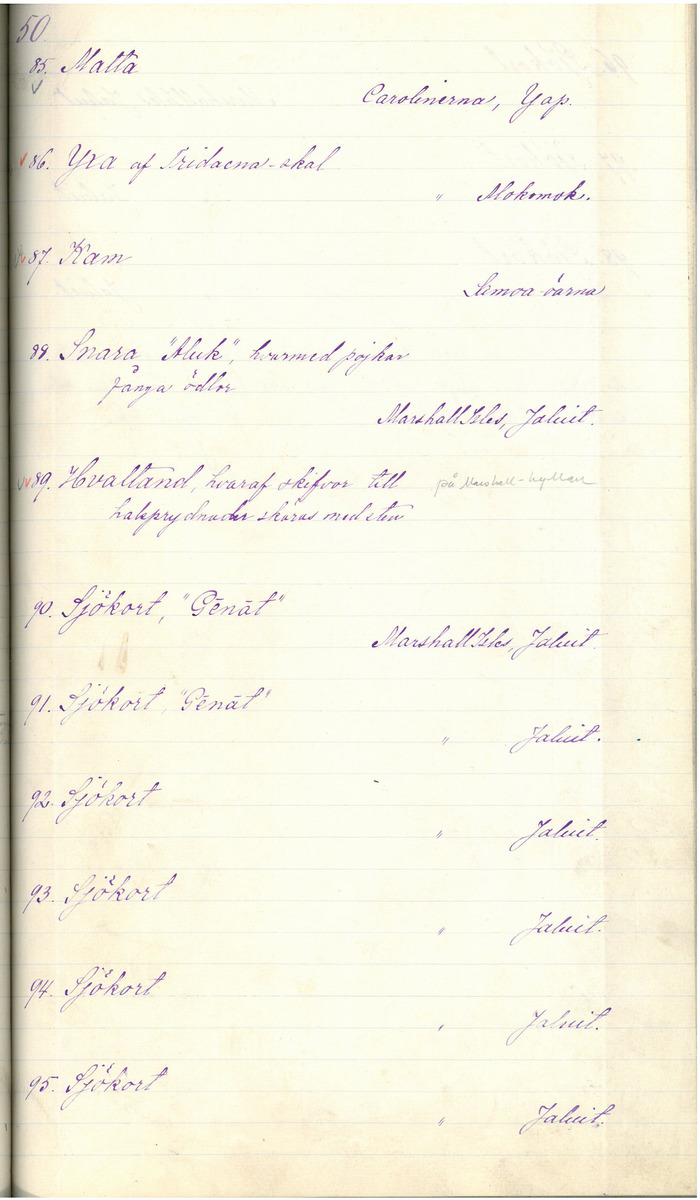 50.
85. Matta
Carolinerna, Yap.
86. Yxa af Tridacna-skal
" Mokomok.
87. Kam
Samoa-öarna
88. Snara "Aluk", hvarmed pojkar
fånga ödlor
Marshall Isles, Jaluit.
89. Hvaltand, hvaraf skifvor till på Marshall-hyllan
halsprydnader skäras med sten
90. Sjökort, "Gēnāt"
Marshall Isles, Jaluit.
91. Sjökort, "Gēnāt"
" Jaluit.
92. Sjökort
" Jaluit.
93. Sjökort
" Jaluit.
94. Sjökort
" Jaluit.
95. Sjökort
" Jaluit.